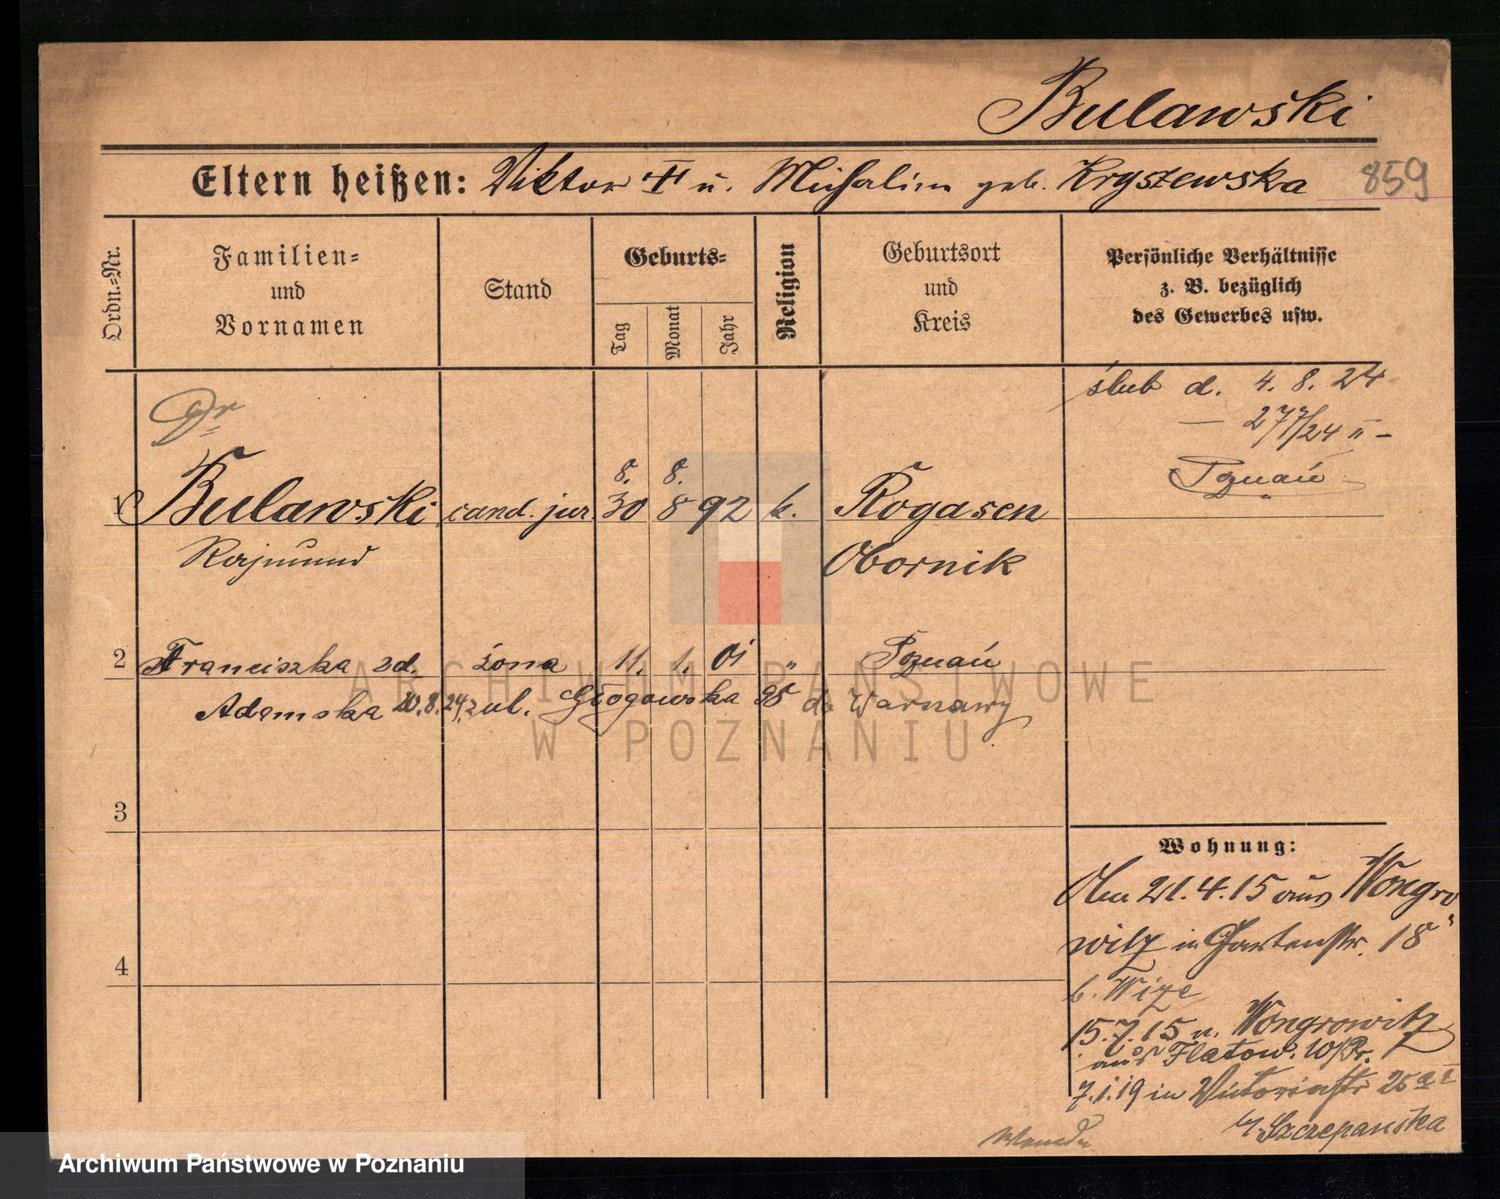 Bulawski
Eltern heißen: Viktor † u. Michalina geb. Kryszewska 859
Ordn.=Nr.
Familien=
und
Vornamen
Stand
Geburts=
Tag
Monat
Jahr
Religion
Geburtsort
und
Kreis
Persönliche Verhältnisse
z. B. bezüglich
des Gewerbes usw.
ślub d. 4. 8. 24
— 277/24 II —
Poznań
Dr
8. 8.
1 Bulawski cand. jur. 30 8 92 k. Rogasen
Rajmund Obornik
2 Franciszka zd. żona 11. 1. 01 " Poznań
Adamska 20.8.24 z ul. Głogowska 95 do Warszawy
3
4
Wohnung:
Am 21.4.15 aus Wongro
witz in Gartenstr. 18
b. Wize
15.7.15 n. Wongrowitz
aus Flatow W/Pr.
7.1.19 in Victoriastr 26a I
b/ Szczepańska
ARCHIWUM PAŃSTWOWE
W POZNANIU
Archiwum Państwowe w Poznaniu